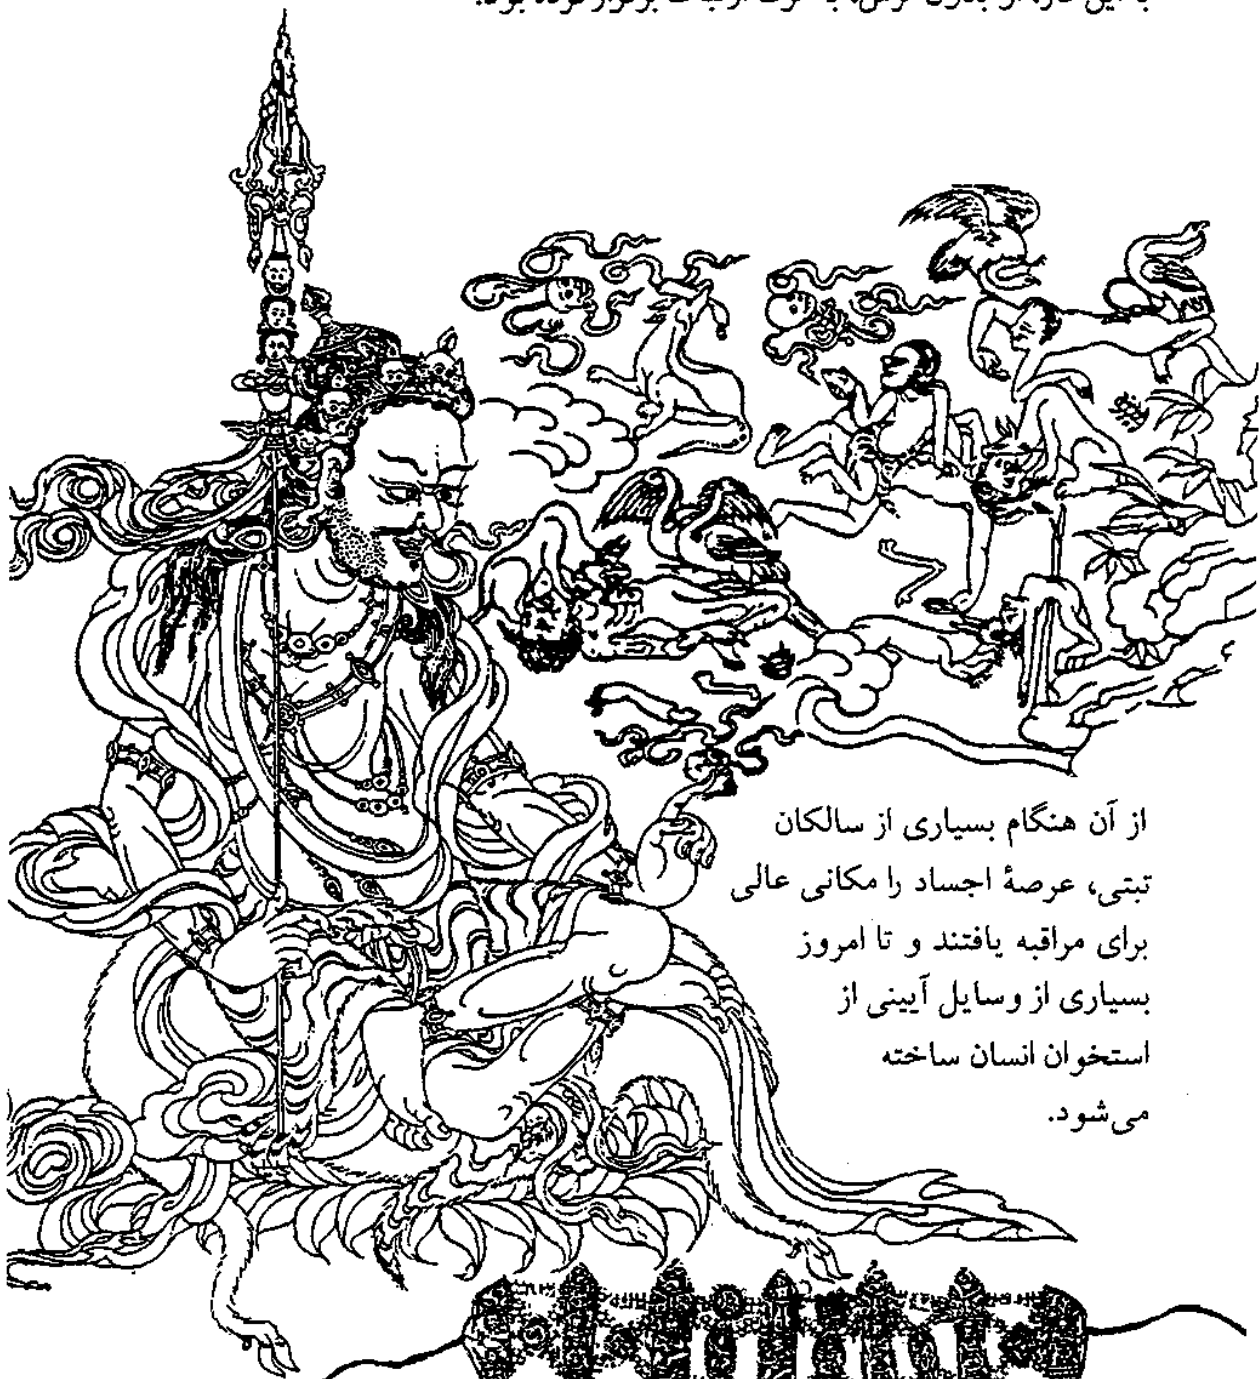 از آن هنگام بسیاری از سالکان
تبتی، عرصهٔ اجساد را مکانی عالی
برای مراقبه یافتند و تا امروز
بسیاری از وسایل آیینی از
استخوان انسان ساخته
می‌شود.